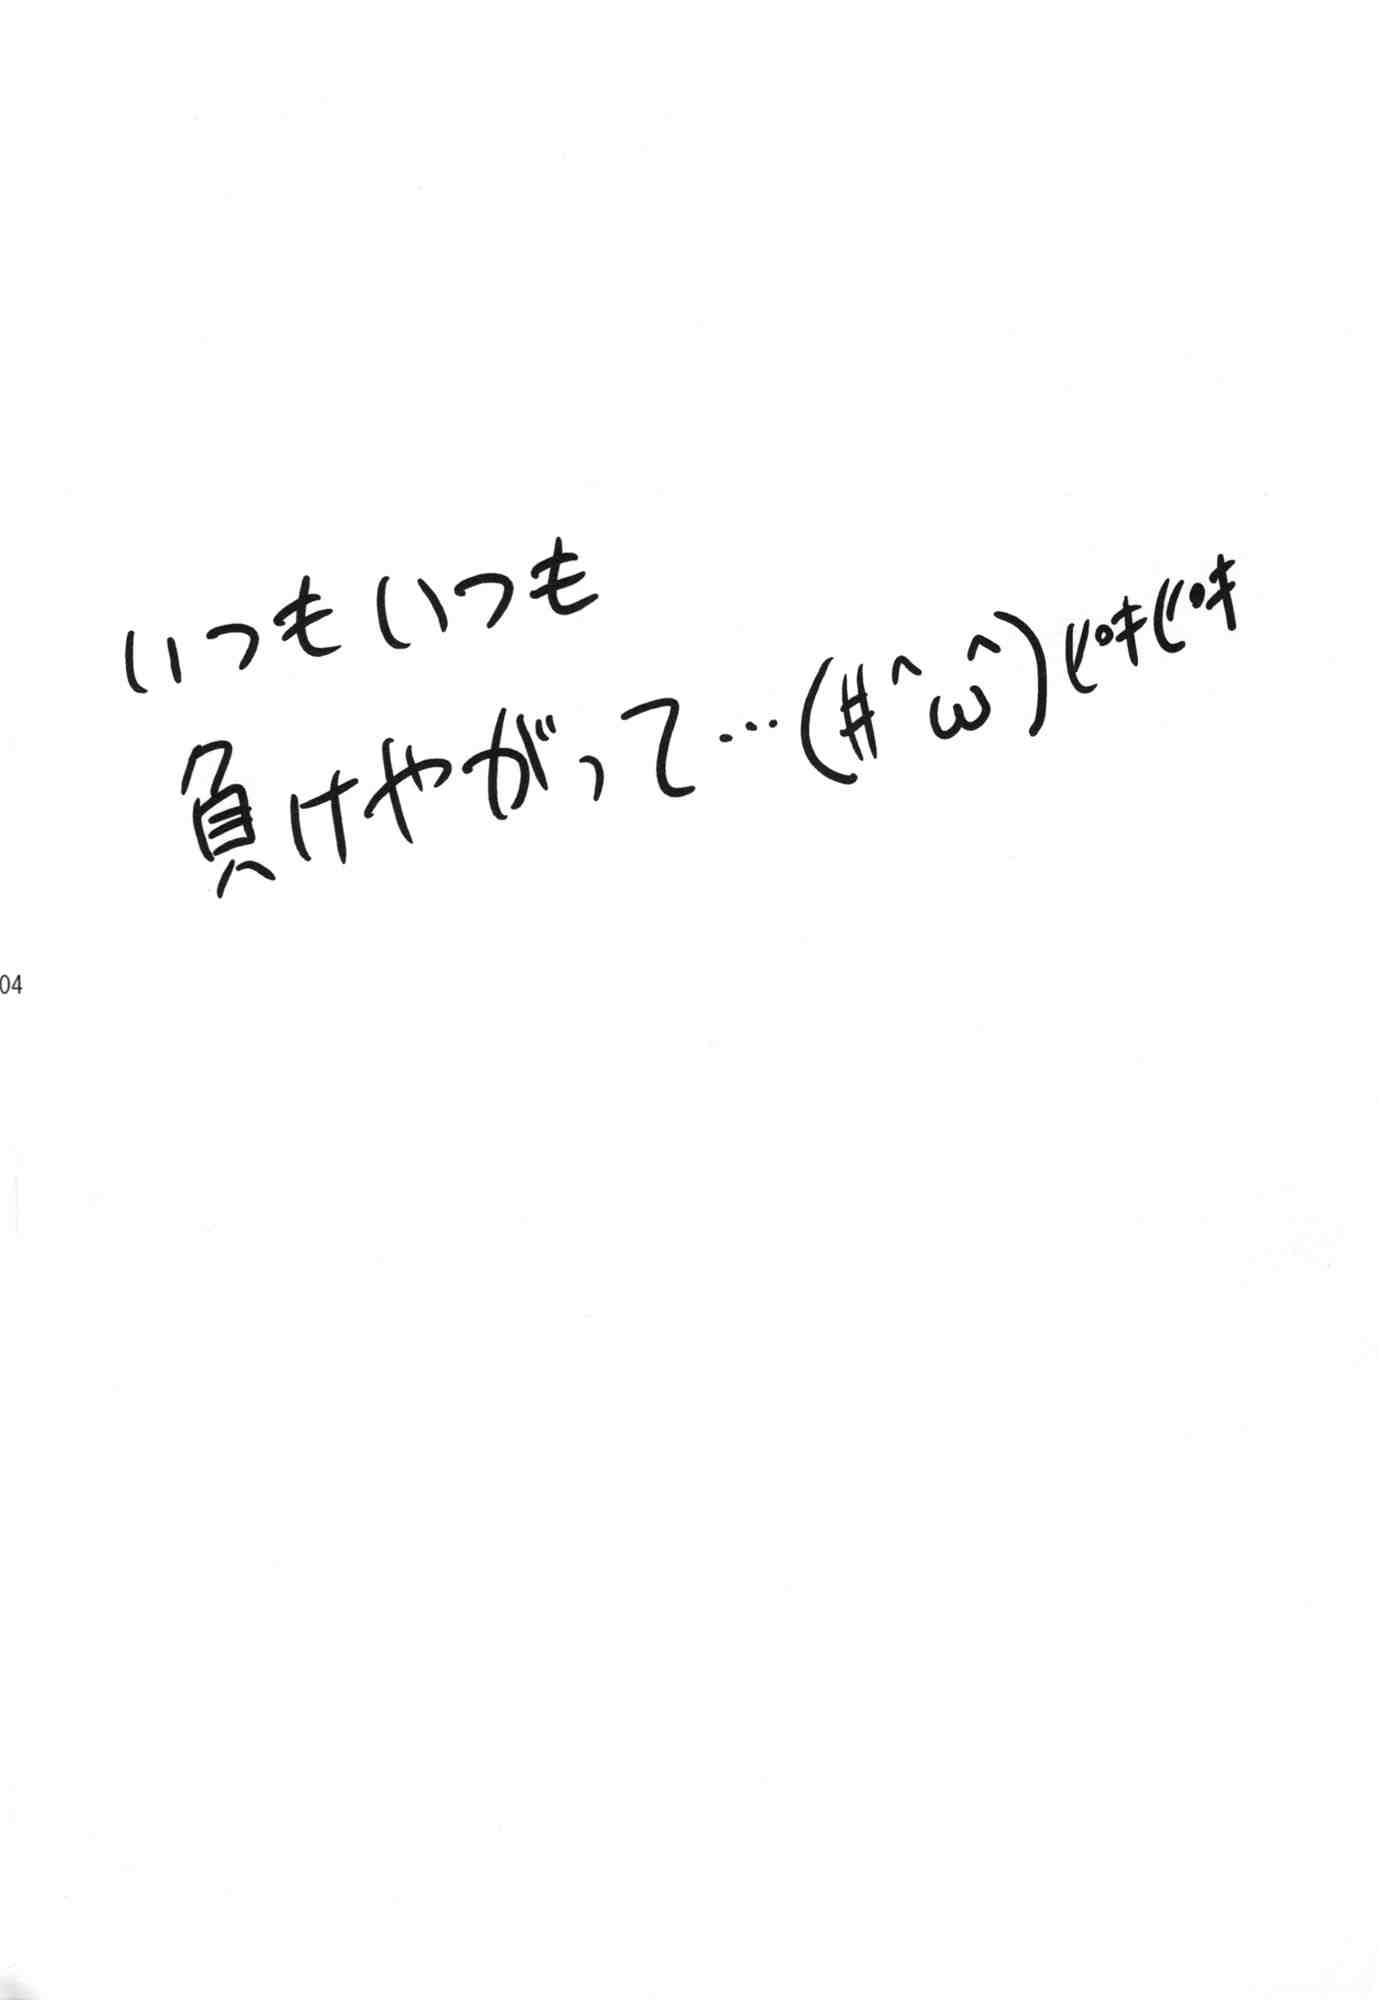 いつもいつも
負けやがって…(#^ω^)ピキピキ
04